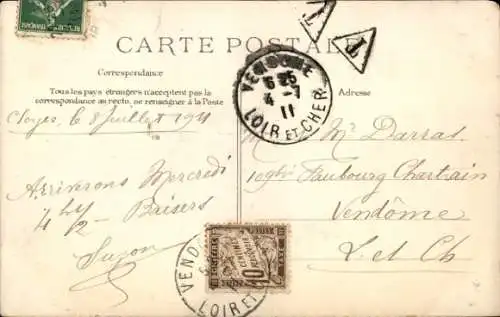 CARTE POSTALE
Correspondance
Tous les pays étrangers n'acceptent pas la
correspondance au recto, se renseigner à la Poste
Adresse
T
T
VENDOME
6 35
4 - 7
11
LOIR ET CHER
Cloyes, le 8 juillet 1911
Arriverons Mercredi
4 h 1/2 Baisers
Suzon
M. Me Darras
109bis Faubourg Chartrain
Vendôme
L. et Ch
POSTES
10
CENTIMES
À PERCEVOIR
VENDO
LOIR ET